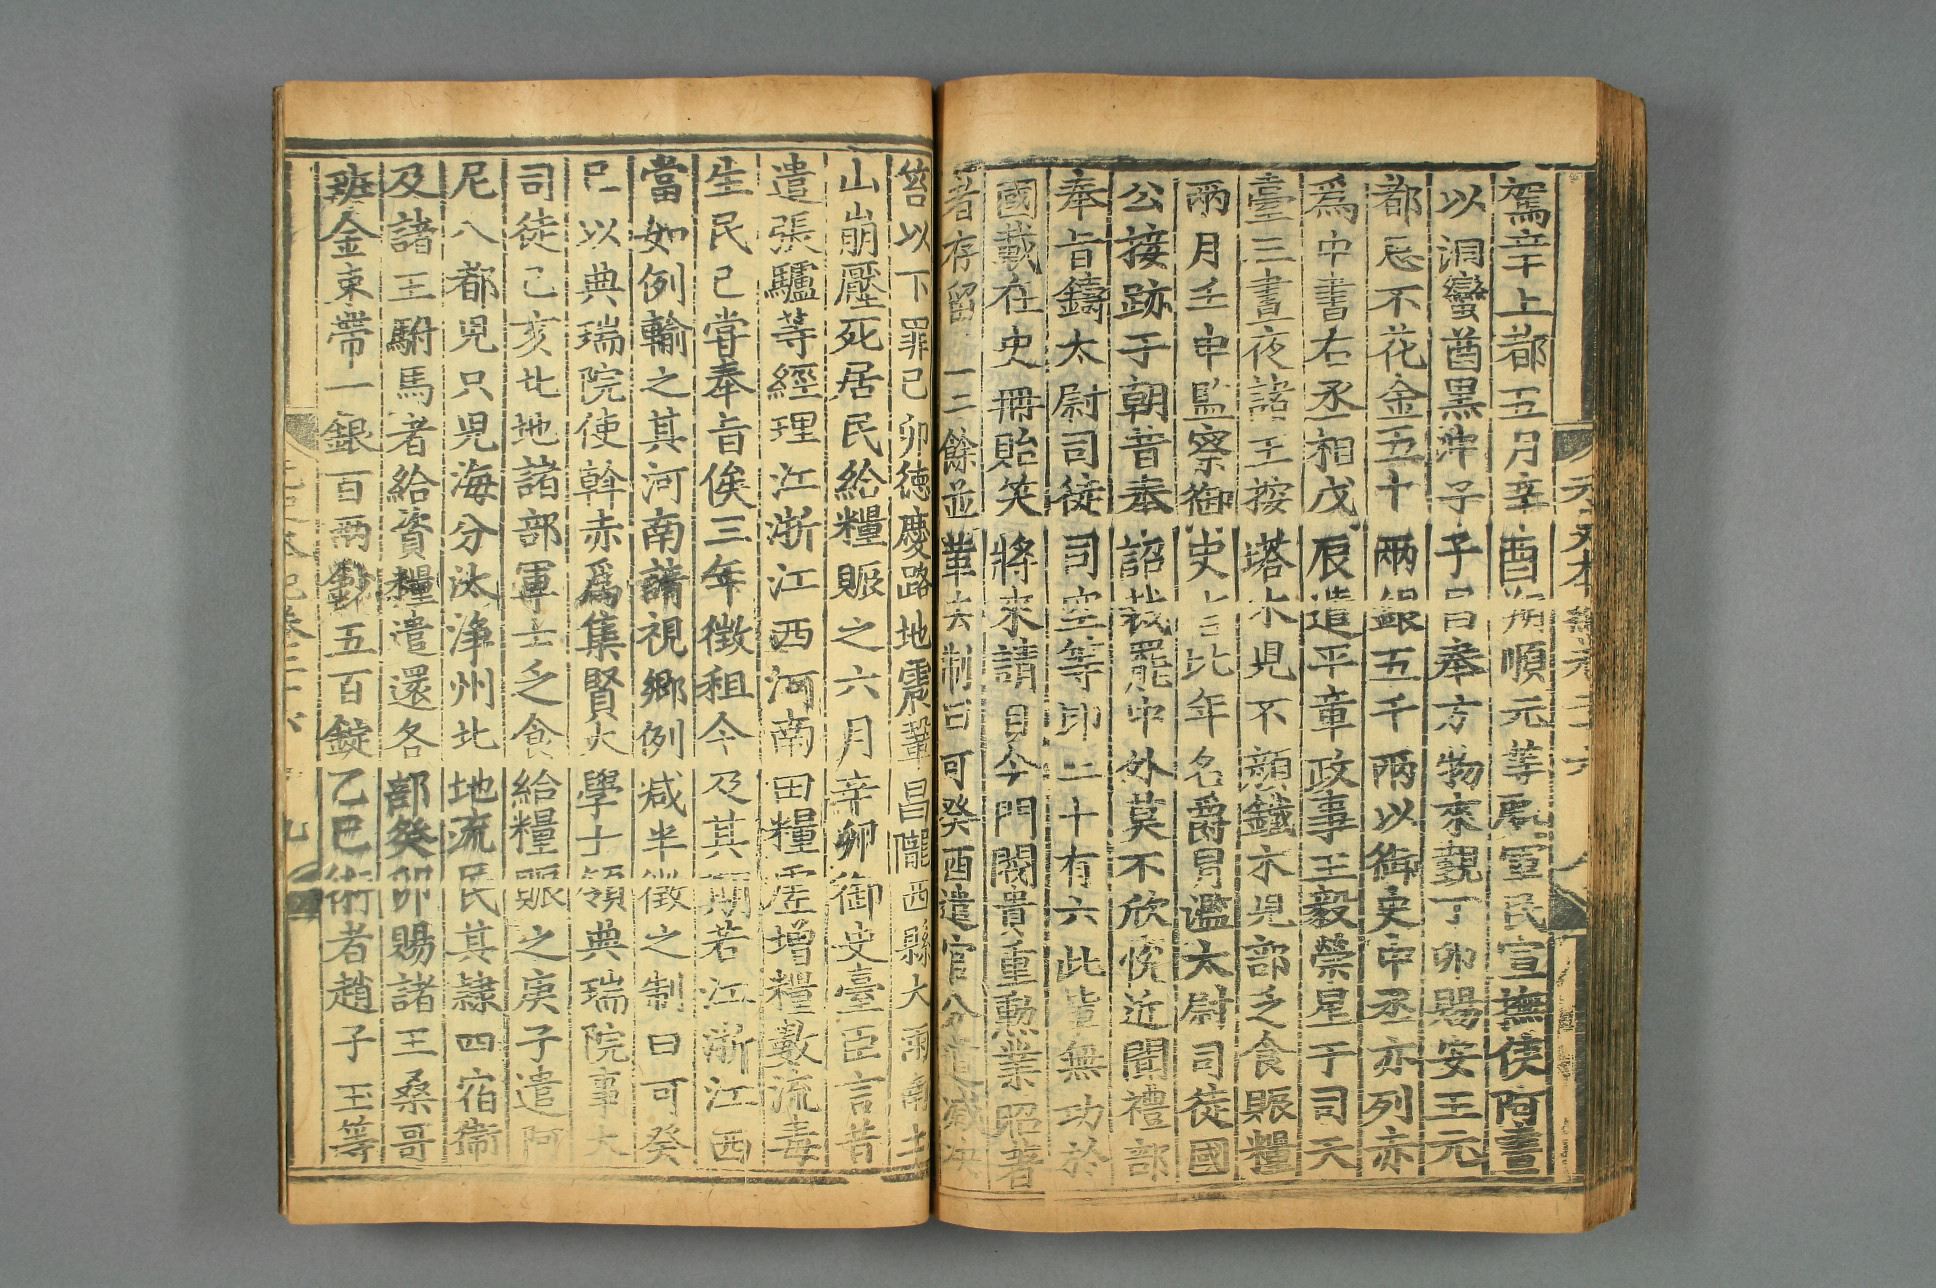 元史本紀卷二十六
駕幸上都五月辛酉朔順元等處軍民宣撫使阿晝
以洞蠻酋黑冲子子昌奉方物來覲丁卯賜安王元
都忌不花金五十兩銀五千兩以御史中丞亦列赤
爲中書右丞相戊辰遣平章政事王毅禜星于司天
臺三晝夜諸王按塔木兒不顏鐵木兒部乏食賑糧
兩月壬申監察御史言比年名爵冒濫太尉司徒國
公接跡于朝昔奉詔裁罷中外莫不欣悅近聞禮部
奉旨鑄太尉司徒司空等印二十有六此輩無功於
國載在史冊貽笑將來請自今門閥貴重勳業昭著
者存留一二餘並革去制曰可癸酉遣官分道減決
笞以下罪己卯德慶路地震鞏昌隴西縣大雨南土
山崩壓死居民給糧賑之六月辛卯御史臺臣言昔
遣張驢等經理江浙江西河南田糧虛增糧數流毒
生民已嘗奉旨俟三年徵租今及其期若江浙江西
當如例輸之其河南請視鄉例減半徵之制曰可癸
巳以典瑞院使斡赤爲集賢大學士領典瑞院事大
司徒己亥北地諸部軍士乏食給糧賑之庚子遣阿
尼八都兒只兒海分汰淨州北地流民其隸四宿衛
及諸王駙馬者給資糧遣還各部癸卯賜諸王桑哥
班金束帶一銀百兩鈔五百錠乙巳術者趙子玉等
元史本紀卷二十六 九